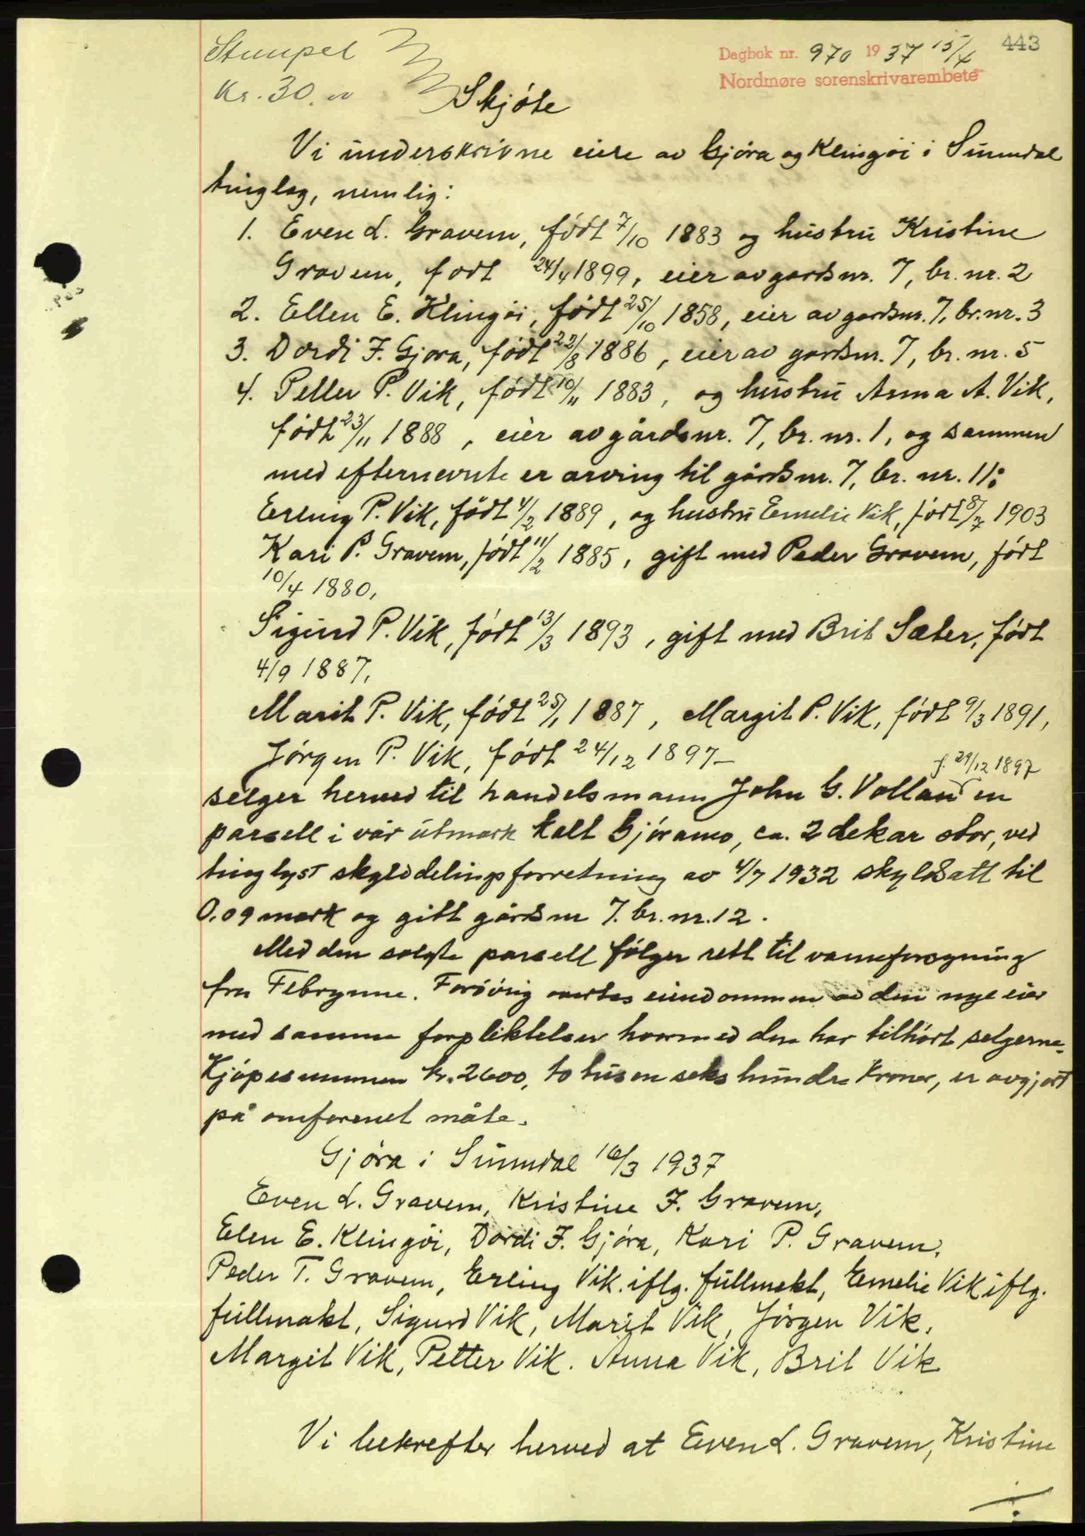 Stempel
Kr. 30.00
Dagbok nr. 970 1937 15/4 443
Nordmøre sorenskrivarembete
Skjøte
Vi underskrivne eiere av Gjøra og Klingøi i Sunndal
tinglag, nemlig:
1. Even L. Gravem, født 7/10 1883 og hustru Kristine
Gravem, født 24/4 1899, eier av gardsnr. 7, br. nr. 2
2. Ellen E. Klingøi, født 25/10 1858, eier av gardsnr. 7, br. nr. 3
3. Dordi F. Gjøra, født 22/8 1886, eier av gardsnr. 7, br. nr. 5
4. Petter P. Vik, født 10/11 1883, og hustru Anna A. Vik,
født 23/11 1888, eier av gårdsnr. 7, br. nr. 1, og sammen
med efternevnte er arving til gårdsnr. 7, br. nr. 11:
Erling P. Vik, født 4/2 1889, og hustru Emelie Vik, født 8/7 1903
Kari P. Gravem, født 11/2 1885, gift med Peder Gravem, født
10/4 1880,
Sigurd P. Vik, født 13/3 1893, gift med Brit Sæter, født
4/9 1887,
Marit P. Vik, født 25/1 1887, Margit P. Vik, født 9/3 1891,
Jørgen P. Vik, født 24/12 1897 –
f. 29/12 1897
selger herved til handelsmann John G. Volland en
parsell i vår utmark kalt Gjøramo, ca. 2 dekar stor, ved
tinglyst skylddelingsforretning av 4/7 1932 skyldsatt til
0,09 mark og gitt gårdsnr 7. br. nr. 12.
Med den solgte parsell følger rett til vannforsyning
fra Flbrynne. Forøvrig overtas eiendommen av den nye eier
med samme forpliktelser hvormed den har tilhørt selgerne.
Kjøpesummen kr. 2600, to tusen seks hundre kroner, er avgjort
på omforenet måte.
Gjøra i Sunndal 16/3 1937
Even L. Gravem, Kristine F. Gravem,
Elen E. Klingøi, Dordi F. Gjøra, Kari P. Gravem,
Peder T. Gravem, Erling Vik. iflg. fullmakt, Emelie Vik iflg.
fullmakt, Sigurd Vik, Marit Vik, Jørgen Vik,
Margit Vik, Petter Vik. Anna Vik, Brit Vik
Vi bekrefter herved at Even L. Gravem, Kristine